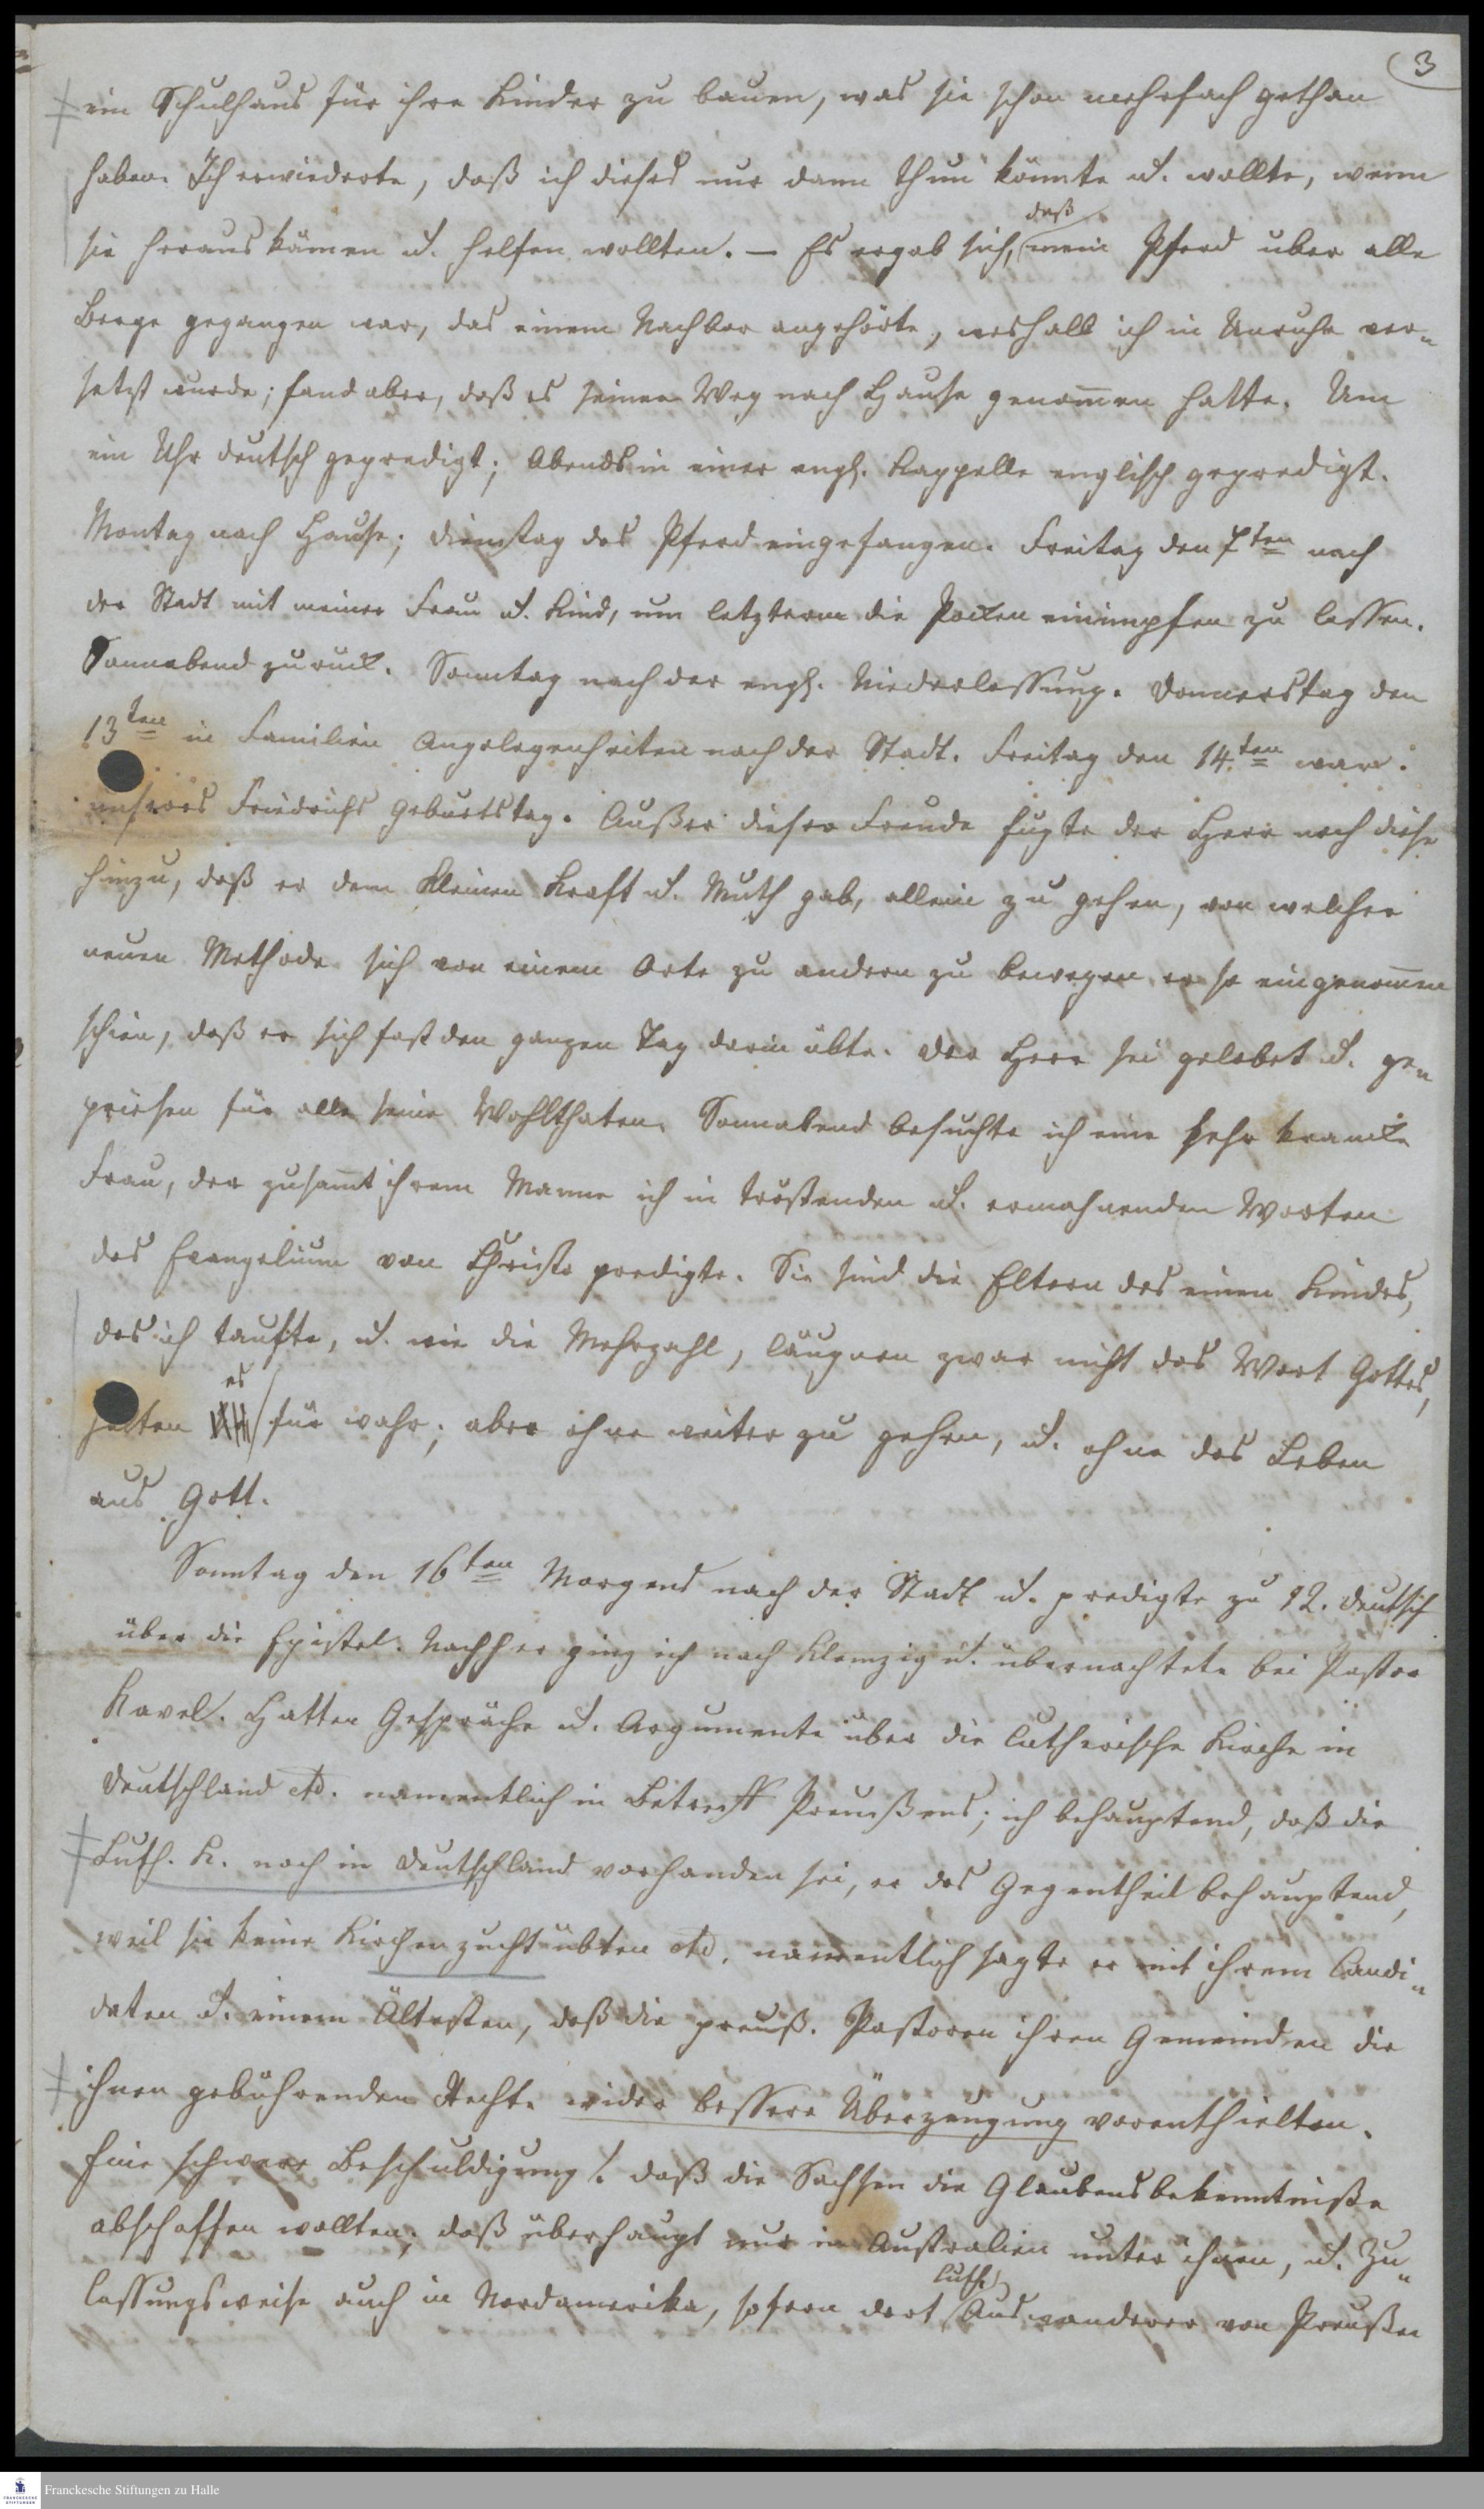 3
ein Schulhaus für ihre Kinder zu bauen, was sie schon mehrfach gethan
haben. Ich erwiederte, daß ich dieses nur dann thun könnte u. wollte, wenn
sie heraus kämen u. helfen wollten. — Es ergab sich, daß mein Pferd uber alle
Berge gegangen war, das einem Nachbar angehörte, weshalb ich in Unruhe ver-
setzt wurde; fand aber, daß es seinen Weg nach Hause genom̅en hatte. Um
ein Uhr deutsch gepredigt; Abends in einer engl. Kappelle englisch gepredigt.
Montag nach Hause; Dienstag das Pferd eingefangen. Freitag den 7ten nach
der Stadt mit meiner Frau u. Kind, um letzterm die Pocken einimpfen zu lassen.
Sonnabend zuruck. Sonntag nach der engl. Niederlassung. Donnerstag den
13ten in Familien Angelegenheiten nach der Stadt. Freitag den 14ten war
unseres Friedrichs Geburtstag. Außer dieser Freude fugte der Herr noch diese
hinzu, daß er dem Kleinen Kraft u. Muth gab, allein zu gehen, von welcher
neuen Methode sich von einem Orte zu andern zu bewegen er so eingenom̅en
schien, daß er sich fast den ganzen Tag darin übte. Der Herr sei gelobet u. ge-
priesen für alle seine Wohlthaten. Sonnabend besuchte ich eine sehr krancke
Frau, der zusam̅t ihrem Manne ich in tröstenden u. ermahnenden Worten
das Evangelium von Christo predigte. Sie sind die Eltern des einen Kindes,
das ich taufte, u. wie die Mehrzahl, läugnen zwar nicht das Wort Gottes,
halten es für wahr; aber ohne weiter zu gehen, u. ohne das Leben
aus Gott.
Sonntag den 16ten Morgens nach der Stadt u. predigte zu 12. deutsch
über die Epistel. Nachher ging ich nach Klemzig u. übernachtete bei Pastor
Kavel. Hatten Gespräche u. Argumente über die lutherische Kirche in
Deutschland etc. namentlich in Betreff Preussens; ich behauptend, daß die
Luth. K. noch in Deutschland vorhanden sei, er das Gegentheil behauptend,
weil sie keine Kirchenzucht übten etc. namentlich sagte er mit ihrem Candi-
daten u. einem Ältesten, daß die preuß. Pastoren ihren Gemeinden die
ihnen gebührenden Rechte wider bessere Überzeugung vorenthielten.
Eine schwere Beschuldigung! daß die Sachsen die Glaubensbekenntniße
abschaffen wollten; daß überhaupt nur in Australien unter ihnen, u. Zu-
lassungsweise auch in Nordamerika, sofern dort luth. Auswanderer von Preußen
Franckesche Stiftungen zu Halle